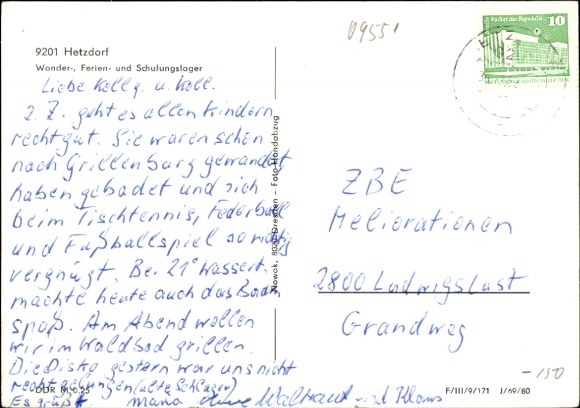 09551
Berlin, Palast der Republik 10
9201 Hetzdorf
Wander-, Ferien- und Schulungslager
Liebe Kollg. u. Koll.
z. Z. geht es allen Kindern
recht gut. Sie waren schon
nach Grillenburg gewandert
haben gebadet und sich
beim Tischtennis, Federball
und Fußballspiel so richtig
vergnügt. Bei 21° Wassert.
machte heute auch das Baden
spaß. Am Abend wollen
wir im Waldbad grillen.
Die Disko gestern war uns nicht
recht gelungen (alte Schlager)
Es grüßt Maria Waltraud und Klaus
DDR M 0,25
Nowak, 8020 Dresden – Foto-Handabzug
ZBE
Meliorationen
2800 Ludwigslust
Grandweg
-150
F/III/9/171 J/69/80